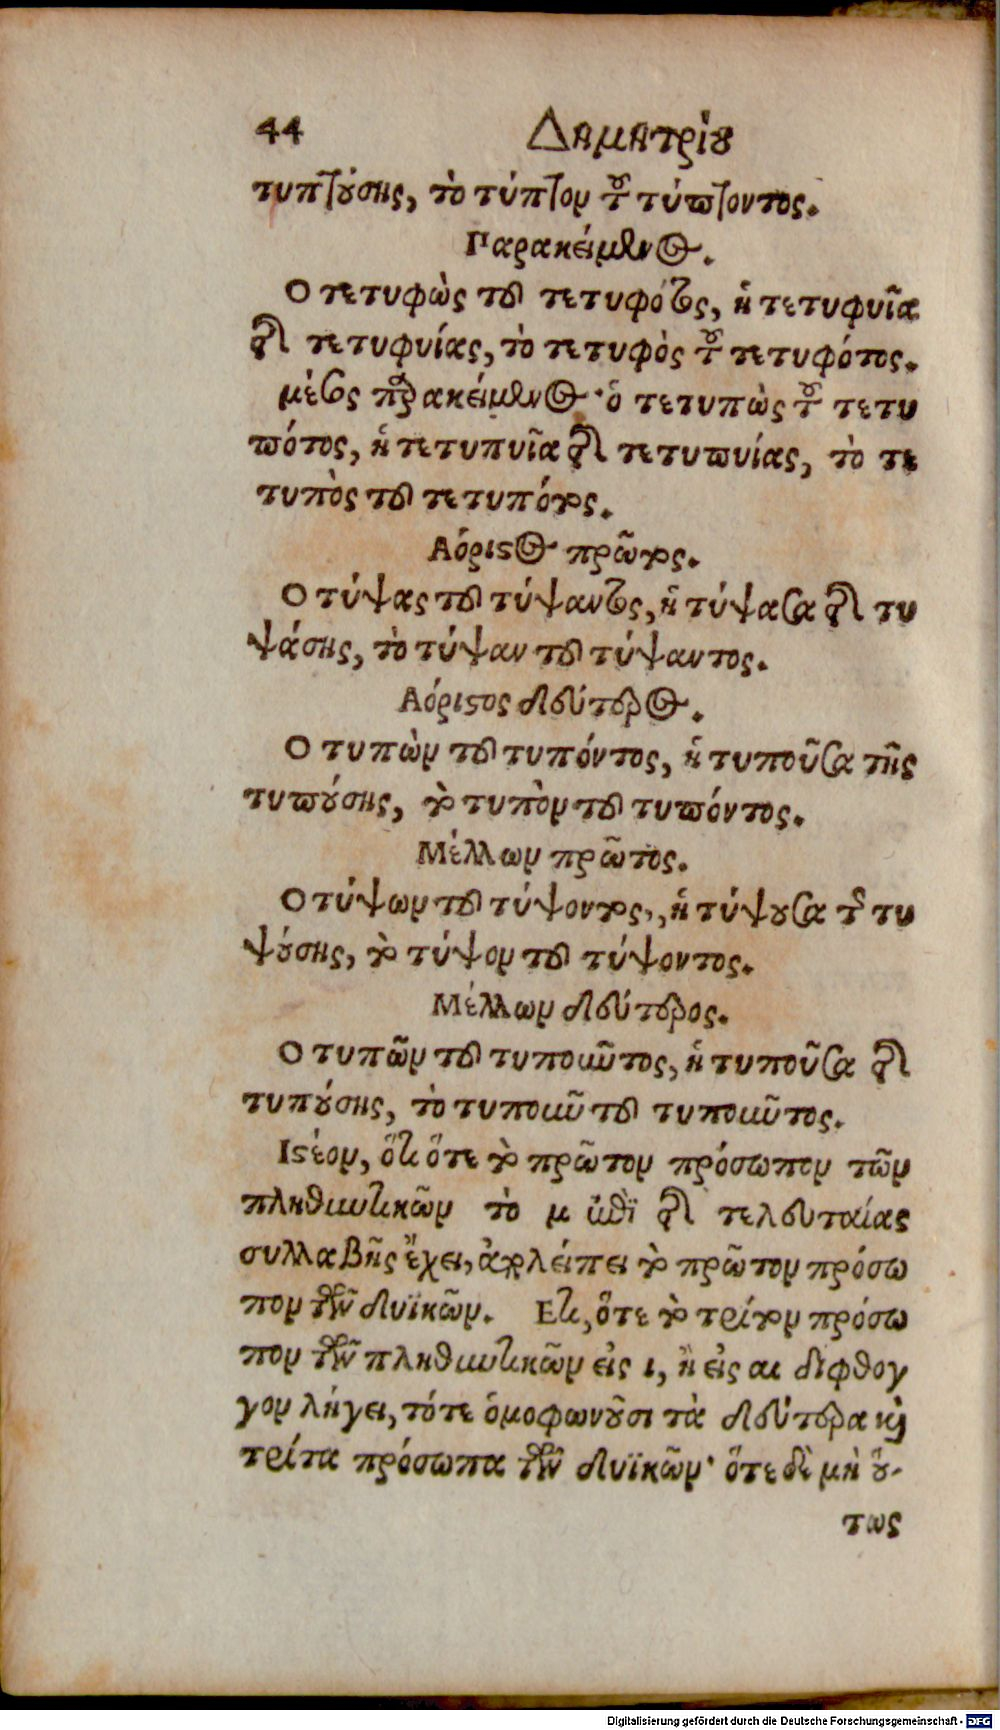 44 Δημητρίου
τυπτούσης, τὸ τύπτον τοῦ τύπτοντος.
Παρακείμενος.
Ο τετυφὼς τοῦ τετυφότος, ἡ τετυφυῖα
τῆς τετυφυίας, τὸ τετυφὸς τοῦ τετυφότος.
μέσος παρακείμενος· ὁ τετυπὼς τοῦ τετυ
πότος, ἡ τετυπυῖα τῆς τετυπυίας, τὸ τε
τυπὸς τοῦ τετυπότος.
Αόριστος πρῶτος.
Ο τύψας τοῦ τύψαντος, ἡ τύψασα τῆς τυ
ψάσης, τὸ τύψαν τοῦ τύψαντος.
Αόριστος δεύτερος.
Ο τυπὼν τοῦ τυπόντος, ἡ τυποῦσα τῆς
τυπούσης, τὸ τυπὸν τοῦ τυπόντος.
Μέλλων πρῶτος.
Ο τύψων τοῦ τύψοντος, ἡ τύψουσα τῆς τυ
ψούσης, τὸ τύψον τοῦ τύψοντος.
Μέλλων δεύτερος.
Ο τυπῶν τοῦ τυποῦντος, ἡ τυποῦσα τῆς
τυπούσης, τὸ τυποῦν τοῦ τυποῦντος.
Ιστέον, ὅτι ὅτε τὸ πρῶτον πρόσωπον τῶν
πληθυντικῶν τὸ μ ἐπὶ τῆς τελευταίας
συλλαβῆς ἔχει, ἀπολείπει τὸ πρῶτον πρόσω
πον τῶν δυϊκῶν. Ετι, ὅτε τὸ τρίτον πρόσω
πον τῶν πληθυντικῶν εἰς ι, ἢ εἰς αι δίφθογ
γον λήγει, τότε ὁμοφωνοῦσι τὰ δεύτερα καὶ
τρίτα πρόσωπα τῶν δυϊκῶν· ὅτε δὲ μὴ οὕ-
τως
Digitalisierung gefördert durch die Deutsche Forschungsgemeinschaft - DFG